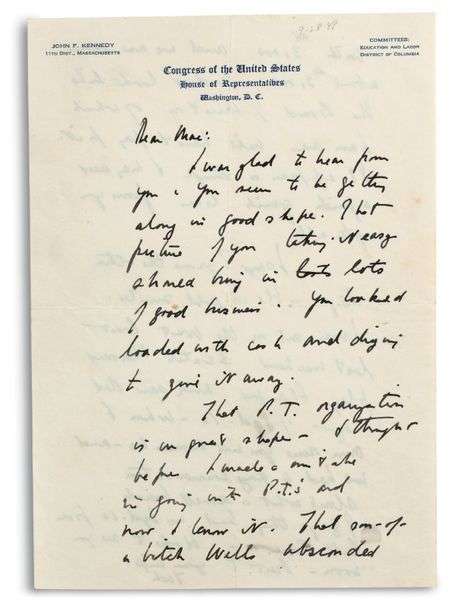 9-28-48
JOHN F. KENNEDY
11TH DIST., MASSACHUSETTS
COMMITTEES:
EDUCATION AND LABOR
DISTRICT OF COLUMBIA
Congress of the United States
House of Representatives
Washington, D. C.
Dear Mac:
I was glad to hear from
you & you seem to be getting
along in good shape. That
picture of you taking it easy
should bring in lots lots
of good business. You looked
loaded with cash and dying
to give it away.
That P.T. organization
is in great shape - I thought
before I made a mistake
in going into P.T.'s and
now I know it. That son-of-
a bitch Walls absconded